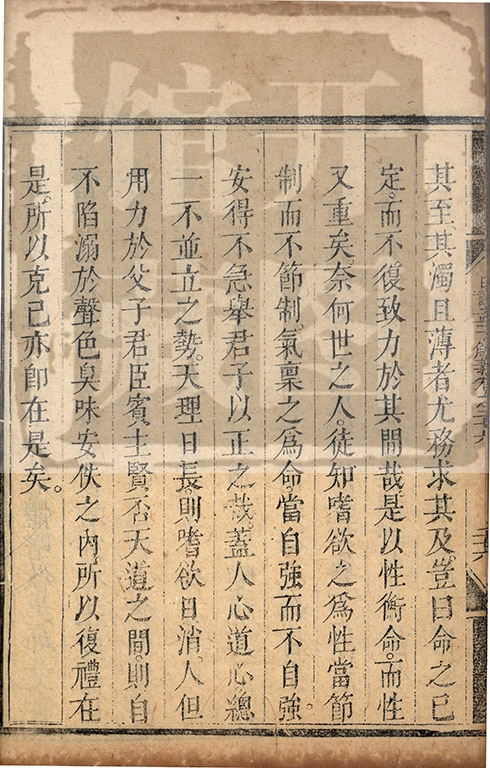 其至其濁且薄者尤務求其及豈曰命之已
定而不復致力於其間哉是以性衡命而性
又重矣奈何世之人徒知嗜欲之爲性當節
制而不節制氣稟之爲命當自強而不自強
安得不急舉君子以正之哉蓋人心道心總
一不並立之勢天理日長則嗜欲日消人但
用力於父子君臣賓主賢否天道之間則自
不陷溺於聲色臭味安佚之內所以復禮在
是所以克己亦卽在是矣。